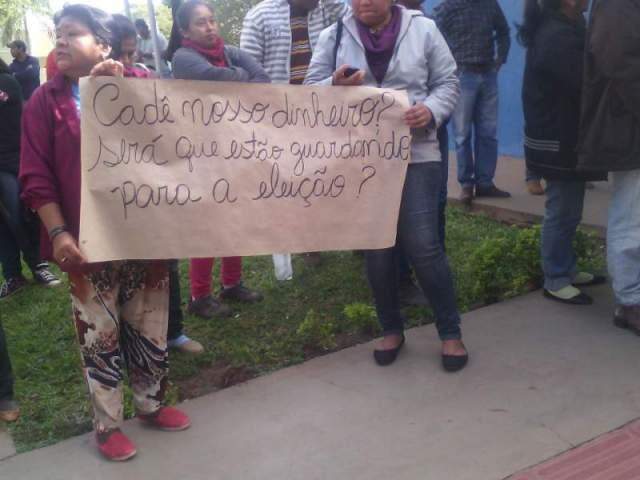 Cadê nosso dinheiro?
Será que estão guardando
para a eleição?